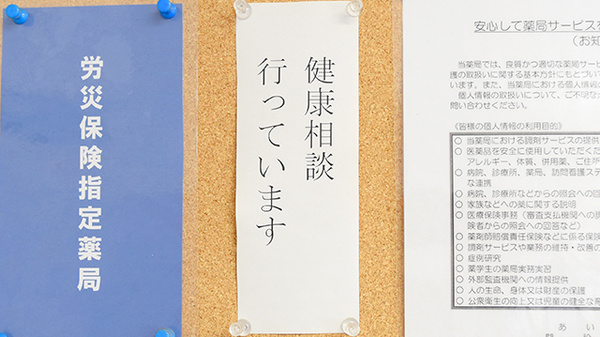 労災保険指定薬局
健康相談
行っています
安心して薬局サービスを
(お知
当薬局では、良質かつ適切な薬局サービ
護の取扱いに関する基本方針にもとづい
います。また、当薬局における個人情報
個人情報の取扱いについて、ご不明な
問い合わせください。
《皆様の個人情報の利用目的》
○ 当薬局における調剤サービスの提供
○ 医薬品を安全に使用していただくた
アレルギー、体質、併用薬、ご住所
○ 病院、診療所、薬局、訪問看護ステ
な連携
○ 病院、診療所などからの照会への回
○ 家族などへの薬に関する説明
○ 医療保険事務(審査支払機関への調
険者からの照会への回答など)
○ 薬剤師賠償責任保険などに係る保険
○ 調剤サービスや業務の維持・改善の
○ 症例研究
○ 薬学生の薬局実務実習
○ 外部監査機関への情報提供
○ 人の生命、身体又は財産の保護
○ 公衆衛生の向上又は児童の健全な育
あい